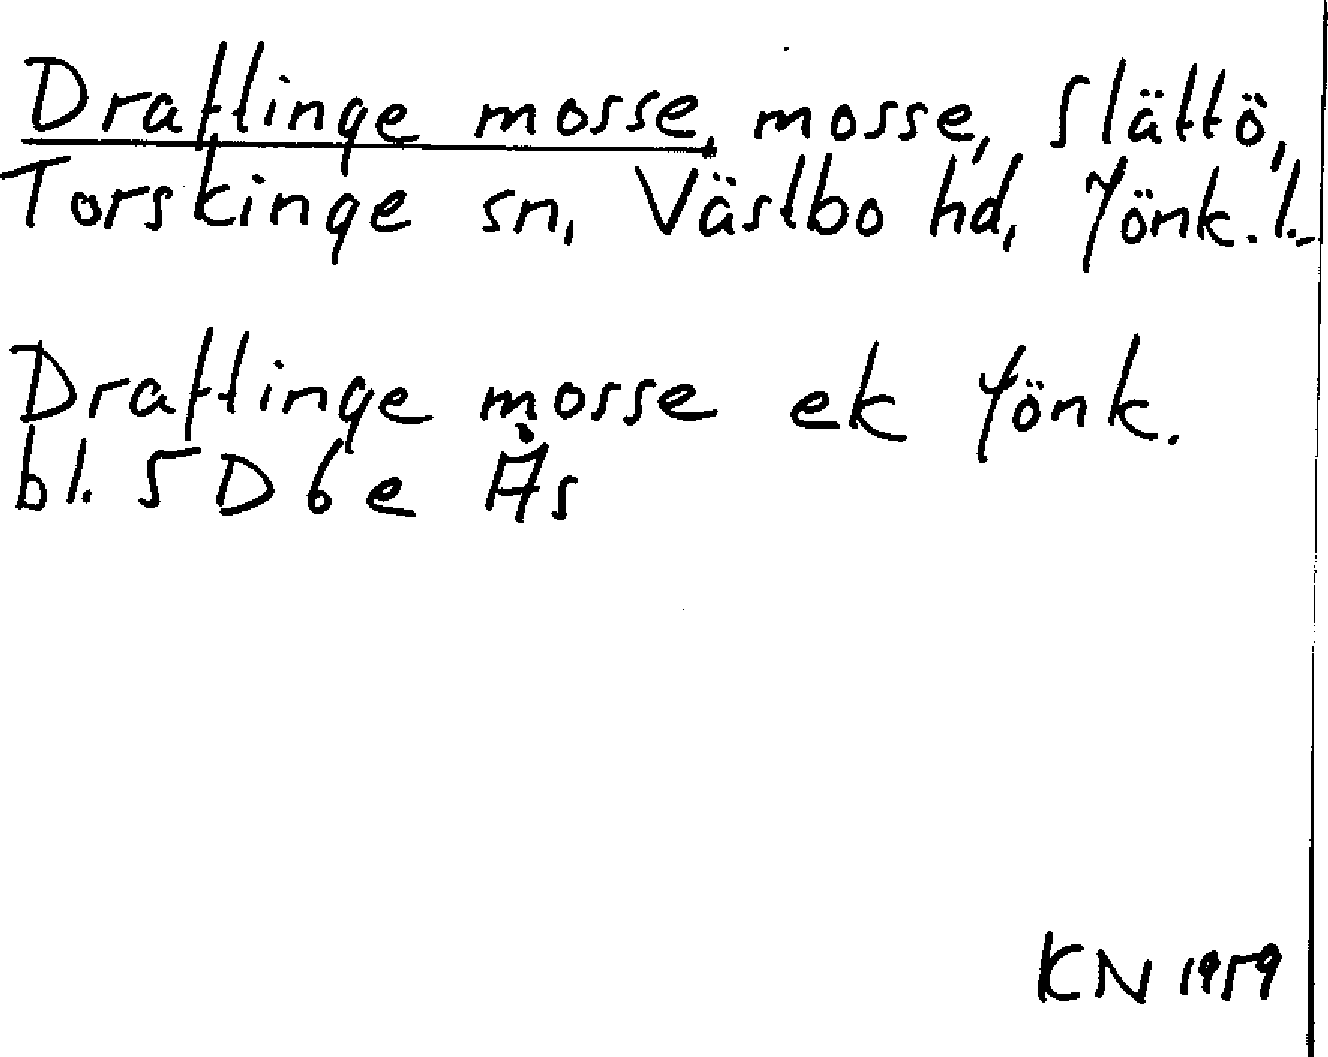 Draftinge mosse, mosse, Slättö,
Torskinge sn, Västbo hd, Jönk. l.
Draftinge mosse ek Jönk.
bl. 5D 6e Ås
KN 1959